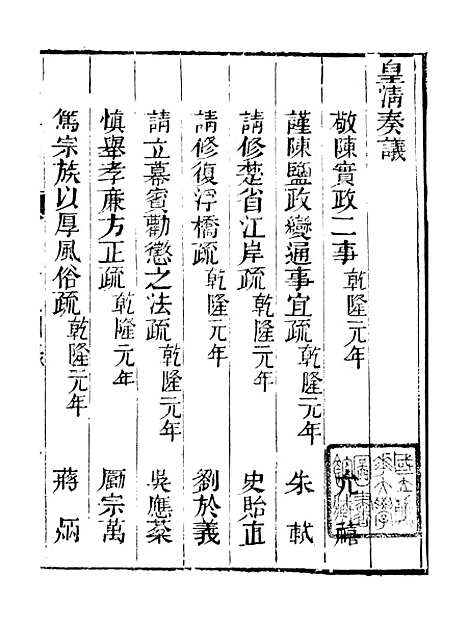 皇清奏議
敬陳實政二事 乾隆元年 允禧
謹陳鹽政變通事宜疏 乾隆元年 朱軾
請修楚省江岸疏 乾隆元年 史貽直
請修復浮橋疏 乾隆元年 劉於義
請立幕賓勸懲之法疏 乾隆元年 吳應棻
慎舉孝廉方正疏 乾隆元年 勵宗萬
篤宗族以厚風俗疏 乾隆元年 蔣炳